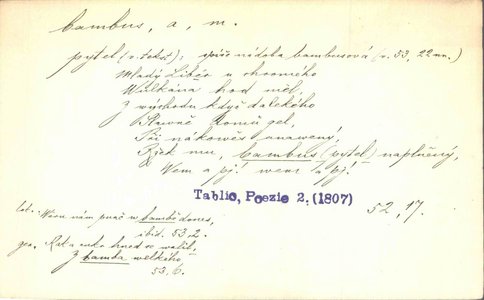 bambus, a, m.
pytel (v. textě); spíše nádoba bambusová (v. 53, 22 nn.)
Mladý Libér u chromého
Wulkána hod měl,
Z východu když dalekého
Slawně domů gel,
Při nákowěs unawený,
Řjek mu, bambus (pytel) naplněný,
Wem a pj! wem a pj!
Tablic, Poezie 2. (1807)
52, 17.
lok. Wjno nám preč w bambě dones,
ibid. 53, 2.
gen. Řeka wjno hned se walil,
Z bamba welkého,
53, 6.